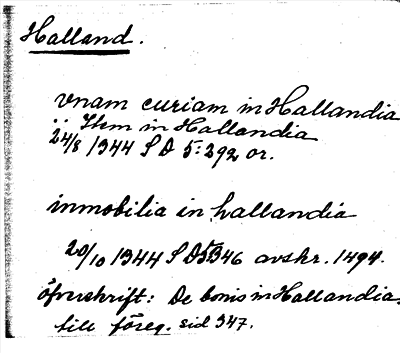 Halland.
vnam curiam in Hallandia
.. Item in Hallandia
24/8 1344 SD 5:292 or.
inmobilia in hallandia
20/10 1344 SD5:346 avskr. 1494.
öfverskrift: De bonis in Hallandia.
till föreg. sid 347.